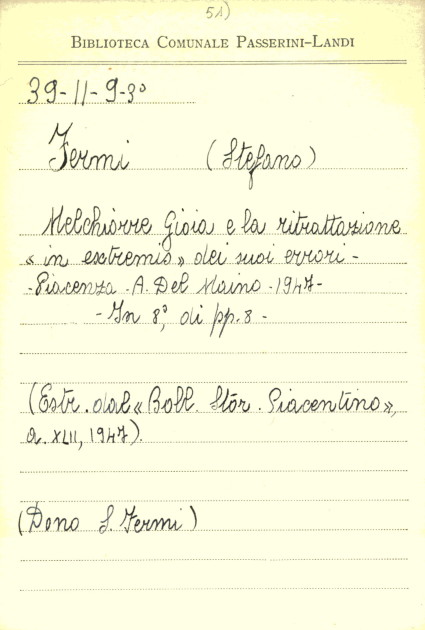 51)
BIBLIOTECA COMUNALE PASSERINI-LANDI
39-11-9-3°
Fermi (Stefano)
Melchiorre Gioia e la ritrattazione
« in extremis » dei suoi errori -
- Piacenza - A. Del Maino - 1947 -
- In 8°, di pp. 8 -
(Estr. dal « Boll. Stor. Piacentino »,
a. XLII, 1947).
(Dono S. Fermi)